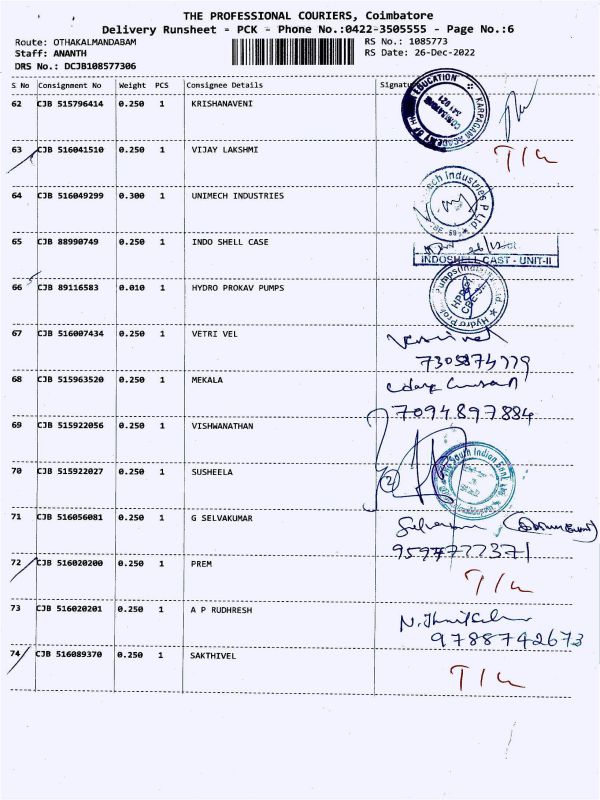 THE PROFESSIONAL COURIERS, Coimbatore
Delivery Runsheet - PCK - Phone No.:0422-3505555 - Page No.:6
Route: OTHAKALMANDABAM RS No.: 1085773
Staff: ANANTH RS Date: 26-Dec-2022
DRS No.: DCJB108577306
S No Consignment No Weight PCS Consignee Details Signatur
62 CJB 515796414 0.250 1 KRISHANAVENI
KARPAGAM ACADEMY OF EDUCATION
63 CJB 516041510 0.250 1 VIJAY LAKSHMI T/L
64 CJB 516049299 0.300 1 UNIMECH INDUSTRIES
ech Industries P Ltd
65 CJB 88990749 0.250 1 INDO SHELL CASE
INDOSHELL CAST - UNIT-II
66 CJB 89116583 0.010 1 HYDRO PROKAV PUMPS
Hydro Prok Pumps (India) Ltd
67 CJB 516007434 0.250 1 VETRI VEL
7305874779
68 CJB 515963520 0.250 1 MEKALA
7094897884
69 CJB 515922056 0.250 1 VISHWANATHAN
South Indian Bank Ltd
70 CJB 515922027 0.250 1 SUSHEELA
2
71 CJB 516056081 0.250 1 G SELVAKUMAR
72 CJB 516020200 0.250 1 PREM T/L
73 CJB 516020201 0.250 1 A P RUDHRESH
9788742673
74 CJB 516089370 0.250 1 SAKTHIVEL T/L